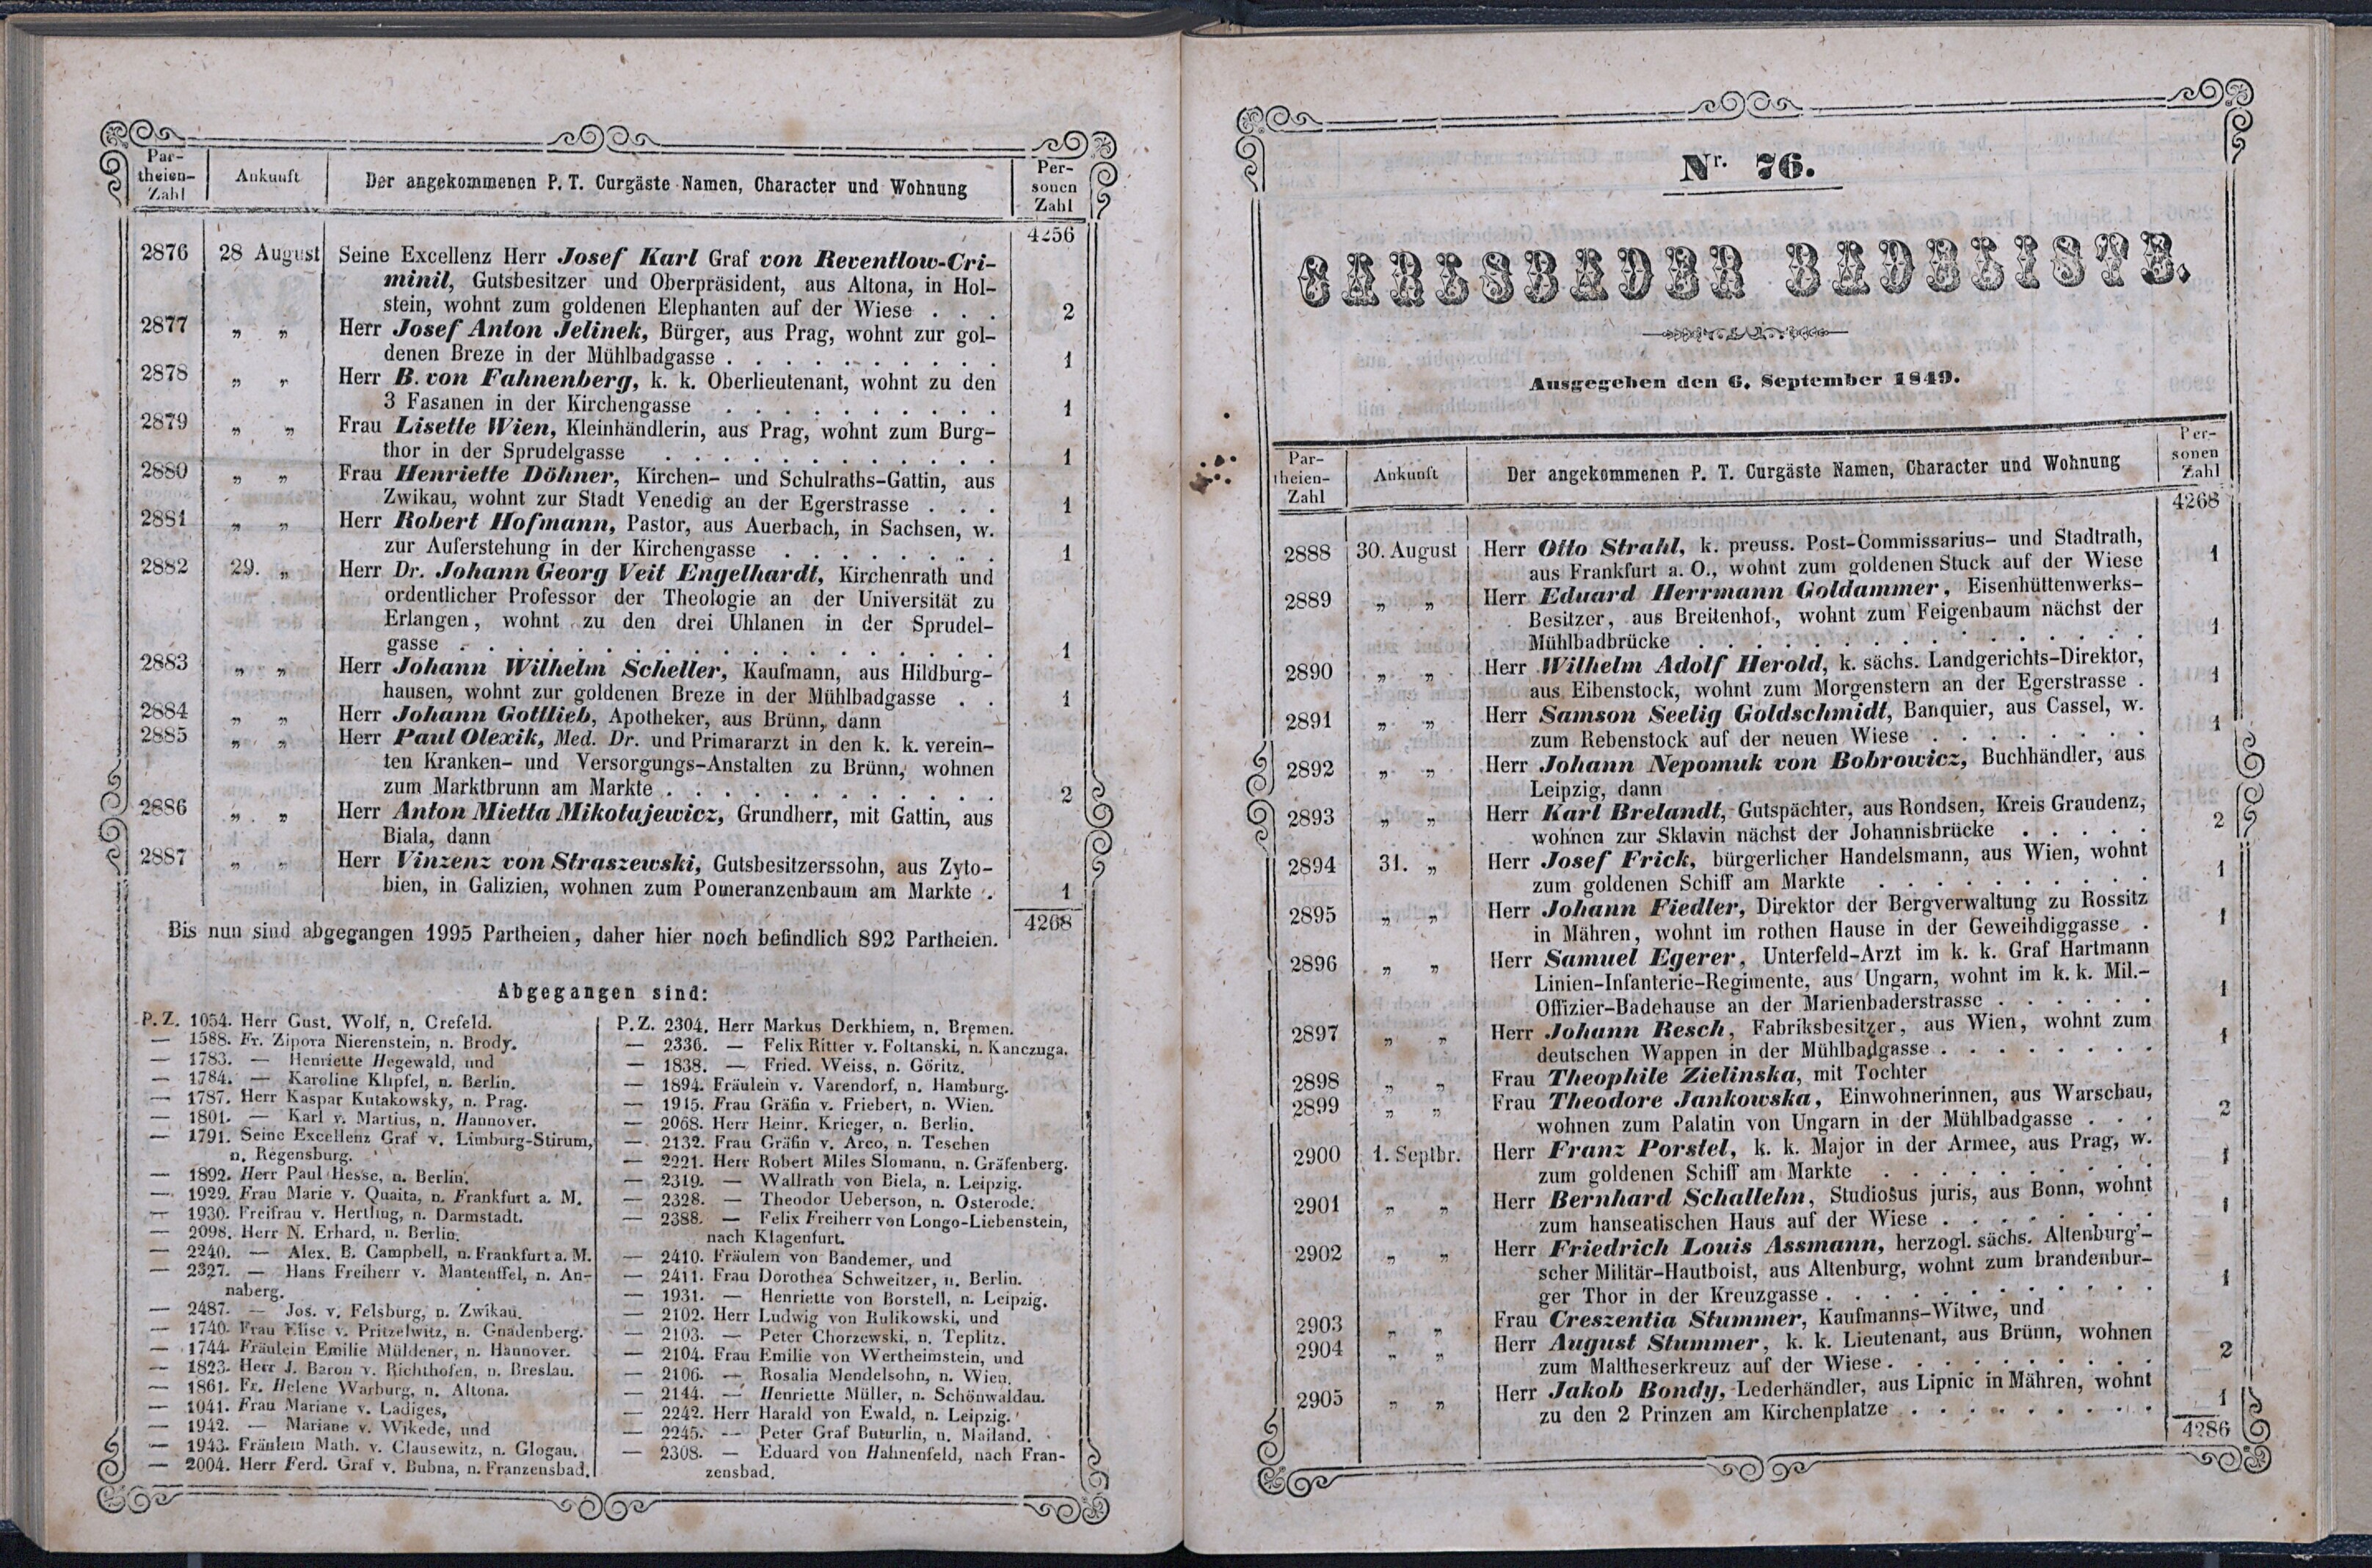 Par-
theien-
Zahl
Ankunft
Der angekommenen P. T. Curgäste Namen, Character und Wohnung
Per-
sonen
Zahl
4256
2876 28 August Seine Excellenz Herr Josef Karl Graf von Reventlow-Cri-
minil, Gutsbesitzer und Oberpräsident, aus Altona, in Hol-
stein, wohnt zum goldenen Elephanten auf der Wiese . . . 2
2877 „ „ Herr Josef Anton Jelinek, Bürger, aus Prag, wohnt zur gol-
denen Breze in der Mühlbadgasse . . . . . . . . . . 1
2878 „ „ Herr B. von Fahnenberg, k. k. Oberlieutenant, wohnt zu den
3 Fasanen in der Kirchengasse . . . . . . . . . . 1
2879 „ „ Frau Lisette Wien, Kleinhändlerin, aus Prag, wohnt zum Burg-
thor in der Sprudelgasse . . . . . . . . . . . . 1
2880 „ „ Frau Henriette Döhner, Kirchen- und Schulraths-Gattin, aus
Zwikau, wohnt zur Stadt Venedig an der Egerstrasse . . . 1
2881 „ „ Herr Robert Hofmann, Pastor, aus Auerbach, in Sachsen, w.
zur Auferstehung in der Kirchengasse . . . . . . . . 1
2882 29. „ Herr Dr. Johann Georg Veit Engelhardt, Kirchenrath und
ordentlicher Professor der Theologie an der Universität zu
Erlangen, wohnt zu den drei Uhlanen in der Sprudel-
gasse . . . . . . . . . . . . . . . . . . . 1
2883 „ „ Herr Johann Wilhelm Scheller, Kaufmann, aus Hildburg-
hausen, wohnt zur goldenen Breze in der Mühlbadgasse . . 1
2884 „ „ Herr Johann Gottlieb, Apotheker, aus Brünn, dann
2885 „ „ Herr Paul Olexik, Med. Dr. und Primararzt in den k. k. verein-
ten Kranken- und Versorgungs-Anstalten zu Brünn, wohnen
zum Marktbrunn am Markte . . . . . . . . . . . . 2
2886 „ „ Herr Anton Mietta Mikotajewicz, Grundherr, mit Gattin, aus
Biala, dann
2887 „ „ Herr Vinzenz von Straszewski, Gutsbesitzerssohn, aus Zyto-
bien, in Galizien, wohnen zum Pomeranzenbaum am Markte . 1
Bis nun sind abgegangen 1995 Partheien, daher hier noch befindlich 892 Partheien. 4268
Abgegangen sind:
P. Z. 1054. Herr Gust. Wolf, n. Crefeld.
— 1588. Fr. Zipora Nierenstein, n. Brody.
— 1783. — Henriette Hegewald, und
— 1784. — Karoline Klipfel, n. Berlin.
— 1787. Herr Kaspar Kutakowsky, n. Prag.
— 1801. — Karl v. Martius, n. Hannover.
— 1791. Seine Excellenz Graf v. Limburg-Stirum,
n. Regensburg.
— 1892. Herr Paul Hesse, n. Berlin.
— 1929. Frau Marie v. Quaita, n. Frankfurt a. M.
— 1930. Freifrau v. Hertling, n. Darmstadt.
— 2098. Herr N. Erhard, n. Berlin.
— 2240. — Alex. B. Campbell, n. Frankfurt a. M.
— 2327. — Hans Freiherr v. Manteuffel, n. An-
naberg.
— 2487. — Jos. v. Felsburg, n. Zwikau.
— 1740. Frau Elise v. Pritzelwitz, n. Gnadenberg.
— 1744. Fräulein Emilie Müldener, n. Hannover.
— 1823. Herr J. Baron v. Richthofen, n. Breslau.
— 1861. Fr. Helene Warburg, n. Altona.
— 1041. Frau Mariane v. Ladiges,
— 1942. — Mariane v. Wikede, und
— 1943. Fräulein Math. v. Clausewitz, n. Glogau.
— 2004. Herr Ferd. Graf v. Bubna, n. Franzensbad.
P. Z. 2304. Herr Markus Derkhiem, n. Bremen.
— 2336. — Felix Ritter v. Foltanski, n. Kanczuga.
— 1838. — Fried. Weiss, n. Göritz.
— 1894. Fräulein v. Varendorf, n. Hamburg.
— 1915. Frau Gräfin v. Friebert, n. Wien.
— 2068. Herr Heinr. Krieger, n. Berlin.
— 2132. Frau Gräfin v. Arco, n. Teschen
— 2221. Herr Robert Miles Slomann, n. Gräfenberg.
— 2319. — Wallrath von Biela, n. Leipzig.
— 2328. — Theodor Ueberson, n. Osterode.
— 2388. — Felix Freiherr von Longo-Liebenstein,
nach Klagenfurt.
— 2410. Fräulein von Bandemer, und
— 2411. Frau Dorothea Schweitzer, n. Berlin.
— 1931. — Henriette von Borstell, n. Leipzig.
— 2102. Herr Ludwig von Rulikowski, und
— 2103. — Peter Chorzewski, n. Teplitz.
— 2104. Frau Emilie von Wertheimstein, und
— 2106. — Rosalia Mendelsohn, n. Wien.
— 2144. — Henriette Müller, n. Schönwaldau.
— 2242. Herr Harald von Ewald, n. Leipzig.
— 2245. — Peter Graf Buturlin, n. Mailand.
— 2308. — Eduard von Hahnenfeld, nach Fran-
zensbad.
Nr. 76.
CARLSBADER BADELISTE.
Ausgegeben den 6. September 1849.
Par-
theien-
Zahl
Ankunft
Der angekommenen P. T. Curgäste Namen, Character und Wohnung
Per-
sonen
Zahl
4268
2888 30. August Herr Otto Strahl, k. preuss. Post-Commissarius- und Stadtrath,
aus Frankfurt a. O., wohnt zum goldenen Stuck auf der Wiese 1
2889 „ „ Herr Eduard Herrmann Goldammer, Eisenhüttenwerks-
Besitzer, aus Breitenhof, wohnt zum Feigenbaum nächst der
Mühlbadbrücke . . . . . . . . . . . . . . . 1
2890 „ „ Herr Wilhelm Adolf Herold, k. sächs. Landgerichts-Direktor,
aus Eibenstock, wohnt zum Morgenstern an der Egerstrasse . 1
2891 „ „ Herr Samson Seelig Goldschmidt, Banquier, aus Cassel, w.
zum Rebenstock auf der neuen Wiese . . . . . . . . 1
2892 „ „ Herr Johann Nepomuk von Bobrowicz, Buchhändler, aus
Leipzig, dann
2893 „ „ Herr Karl Brelandt, Gutspächter, aus Rondsen, Kreis Graudenz,
wohnen zur Sklavin nächst der Johannisbrücke . . . . . 2
2894 31. „ Herr Josef Frick, bürgerlicher Handelsmann, aus Wien, wohnt
zum goldenen Schiff am Markte . . . . . . . . . . 1
2895 „ „ Herr Johann Fiedler, Direktor der Bergverwaltung zu Rossitz
in Mähren, wohnt im rothen Hause in der Geweihdiggasse . 1
2896 „ „ Herr Samuel Egerer, Unterfeld-Arzt im k. k. Graf Hartmann
Linien-Infanterie-Regimente, aus Ungarn, wohnt im k. k. Mil.-
Offizier-Badehause an der Marienbaderstrasse . . . . . . 1
2897 „ „ Herr Johann Resch, Fabriksbesitzer, aus Wien, wohnt zum
deutschen Wappen in der Mühlbadgasse . . . . . . . . 1
2898 „ „ Frau Theophile Zielinska, mit Tochter
2899 „ „ Frau Theodore Jankowska, Einwohnerinnen, aus Warschau,
wohnen zum Palatin von Ungarn in der Mühlbadgasse . . . 2
2900 1. Septbr. Herr Franz Porstel, k. k. Major in der Armee, aus Prag, w.
zum goldenen Schiff am Markte . . . . . . . . . . 1
2901 „ „ Herr Bernhard Schallehn, Studiosus juris, aus Bonn, wohnt
zum hanseatischen Haus auf der Wiese . . . . . . . . 1
2902 „ „ Herr Friedrich Louis Assmann, herzogl. sächs. Altenburg'-
scher Militär-Hautboist, aus Altenburg, wohnt zum brandenbur-
ger Thor in der Kreuzgasse . . . . . . . . . . . . 1
2903 „ „ Frau Creszentia Stummer, Kaufmanns-Witwe, und
2904 „ „ Herr August Stummer, k. k. Lieutenant, aus Brünn, wohnen
zum Maltheserkreuz auf der Wiese . . . . . . . . . . 2
2905 „ „ Herr Jakob Bondy, Lederhändler, aus Lipnic in Mähren, wohnt
zu den 2 Prinzen am Kirchenplatze . . . . . . . . . 1
4286